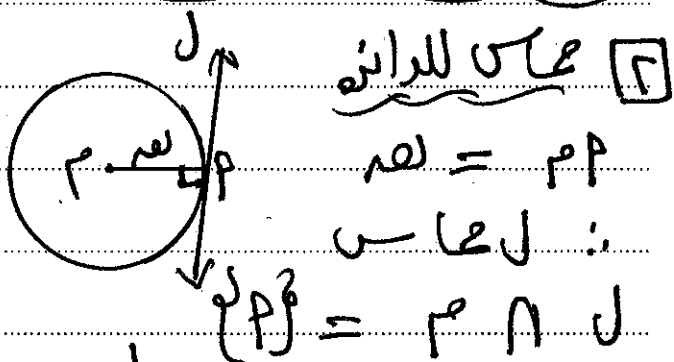 ٢ مماس للدائرة
م أ = نق
∴ ل مماس
ل ∩ م = {أ}
ل
م نق أ